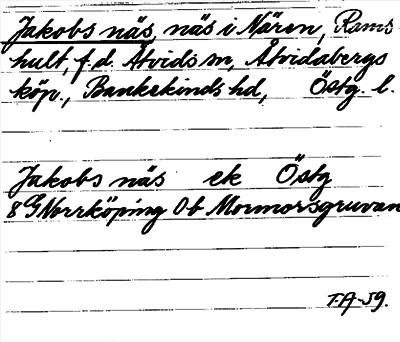 Jakobs näs, näs i Nären, Rams-
hult, f.d. Åtvids sn, Åtvidabergs
köp., Bankekinds hd, Östg. l.
Jakobs näs ek Östg
8G Norrköping 0b Mormorsgruvan
T.A-59.